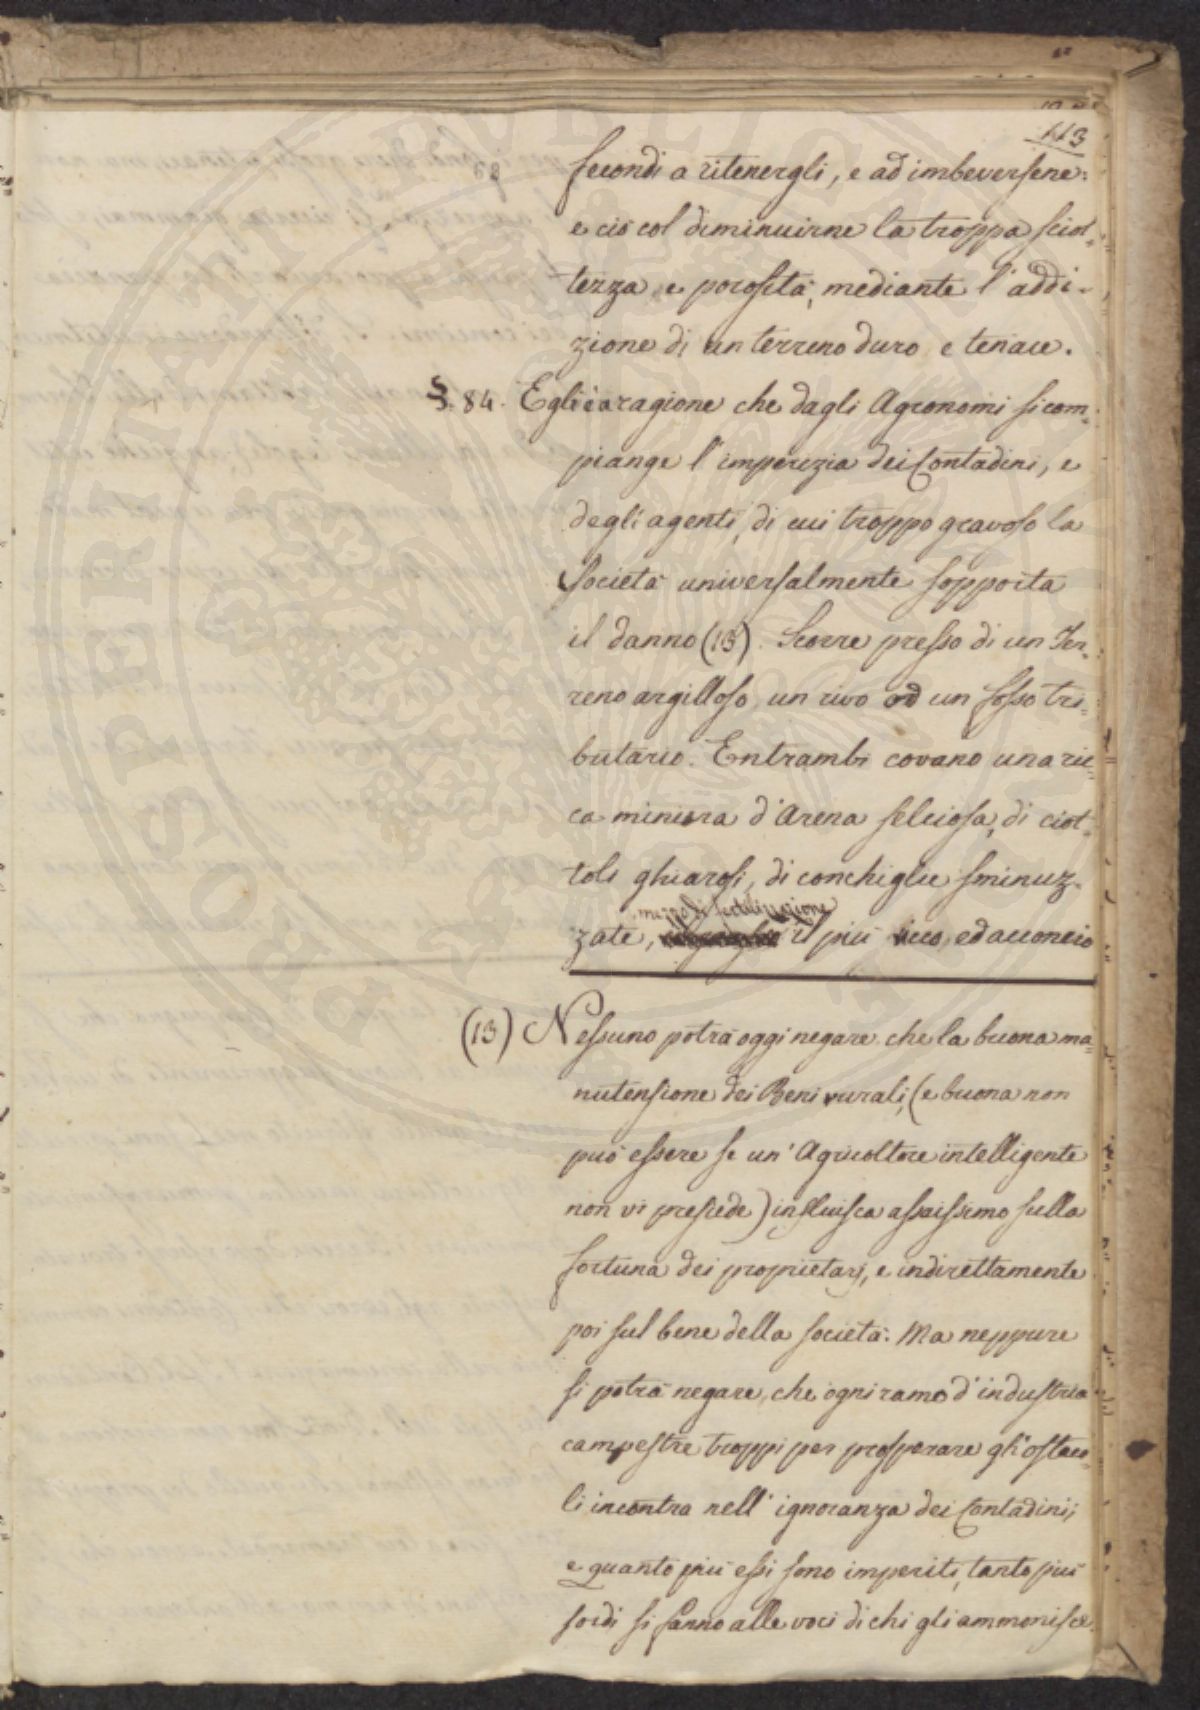 113
68
secondi a ritenergli, e ad imbeversene:
e ciò col diminuirne la troppa sciol-
tezza e porosità, mediante l'addi-
zione di un terreno duro e tenace.
§. 84. Egli è a ragione che dagli Agronomi si com-
piange l'imperizia dei Contadini, e
degli agenti, di cui troppo gravoso la
Società universalmente sopporta
il danno (13). Scorre presso di un Ter-
reno argilloso un rivo od un fosso tri-
butario. Entrambi covano una ric-
ca miniera d'Arena selciosa, di ciot-
toli ghiarosi, di conchiglie sminuz-
mezzo di fertilizzazione
zate, il più ricco, ed acconcio
(13) Nessuno potrà oggi negare che la buona ma-
nutensione dei Beni rurali, (e buona non
può essere se un' Agricoltore intelligente
non vi presiede) influisca assaissimo sulla
fortuna dei proprietarj, e indirettamente
poi sul bene della società. Ma neppure
si potrà negare, che ogni ramo d'industria
campestre troppi per prosperare gli ostaco-
li incontra nell'ignoranza dei Contadini;
e quanto più essi sono imperiti, tanto più
sordi si fanno alle voci di chi gli ammonisce.
PROSPERITATI PUBLICAE